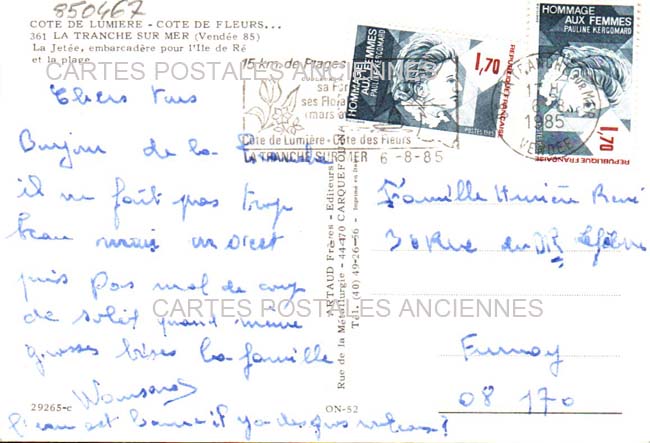 850467
COTE DE LUMIERE - COTE DE FLEURS...
361 LA TRANCHE SUR MER (Vendée 85)
La Jetée, embarcadère pour l'Ile de Ré
et la plage
CARTES POSTALES ANCIENNES
15 km. de Plages
sa For
ses Flora
(mars a
Côte de Lumière - Côte des Fleurs
LA TRANCHE SUR MER 6-8-85
HOMMAGE AUX FEMMES
PAULINE KERGOMARD
1,70
REPUBLIQUE FRANÇAISE
POSTES 1985
HOMMAGE AUX FEMMES
PAULINE KERGOMARD
1,70
REPUBLIQUE FRANÇAISE
LA TRANCHE SUR MER
1985
VENDEE
Chers tous
Bonjour de la
il ne fait pas trop
beau mais
pas mal de coup
de soleil quand même
grosses bises la famille
l'eau est bonne il y a des
ARTAUD Frères - Editeurs
Rue de la Métallurgie - 44-470 CARQUEFOU
Tél. (40) 49-26-56 - Imprimé en
Famille René
30 Rue du DR Lefebvre
Fumay
08 170
29265-c
ON-52
CARTES POSTALES ANCIENNES